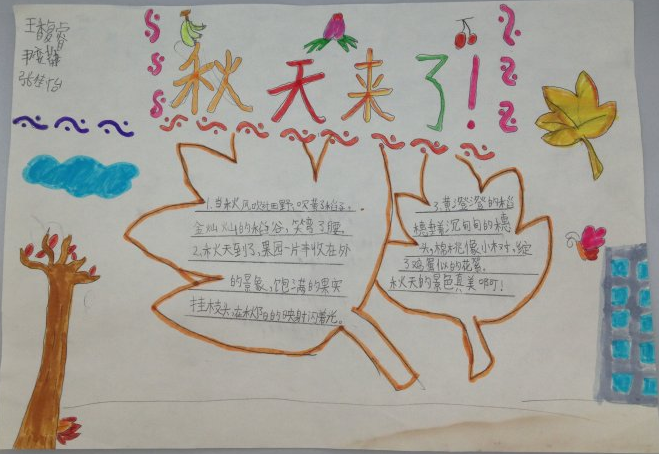 秋天来了!
1.当秋风吹过田野,吹黄了稻子。
金灿灿的稻谷,笑弯了腰。
2.秋天到了,果园一片丰收在外
的景象,饱满的果实
挂枝头,在秋阳的映射闪着光。
3.黄澄澄的稻
穗垂着沉甸甸的穗
头,棉桃像小树,绽
了鸡蛋似的花蕾。
秋天的景色真美啊!